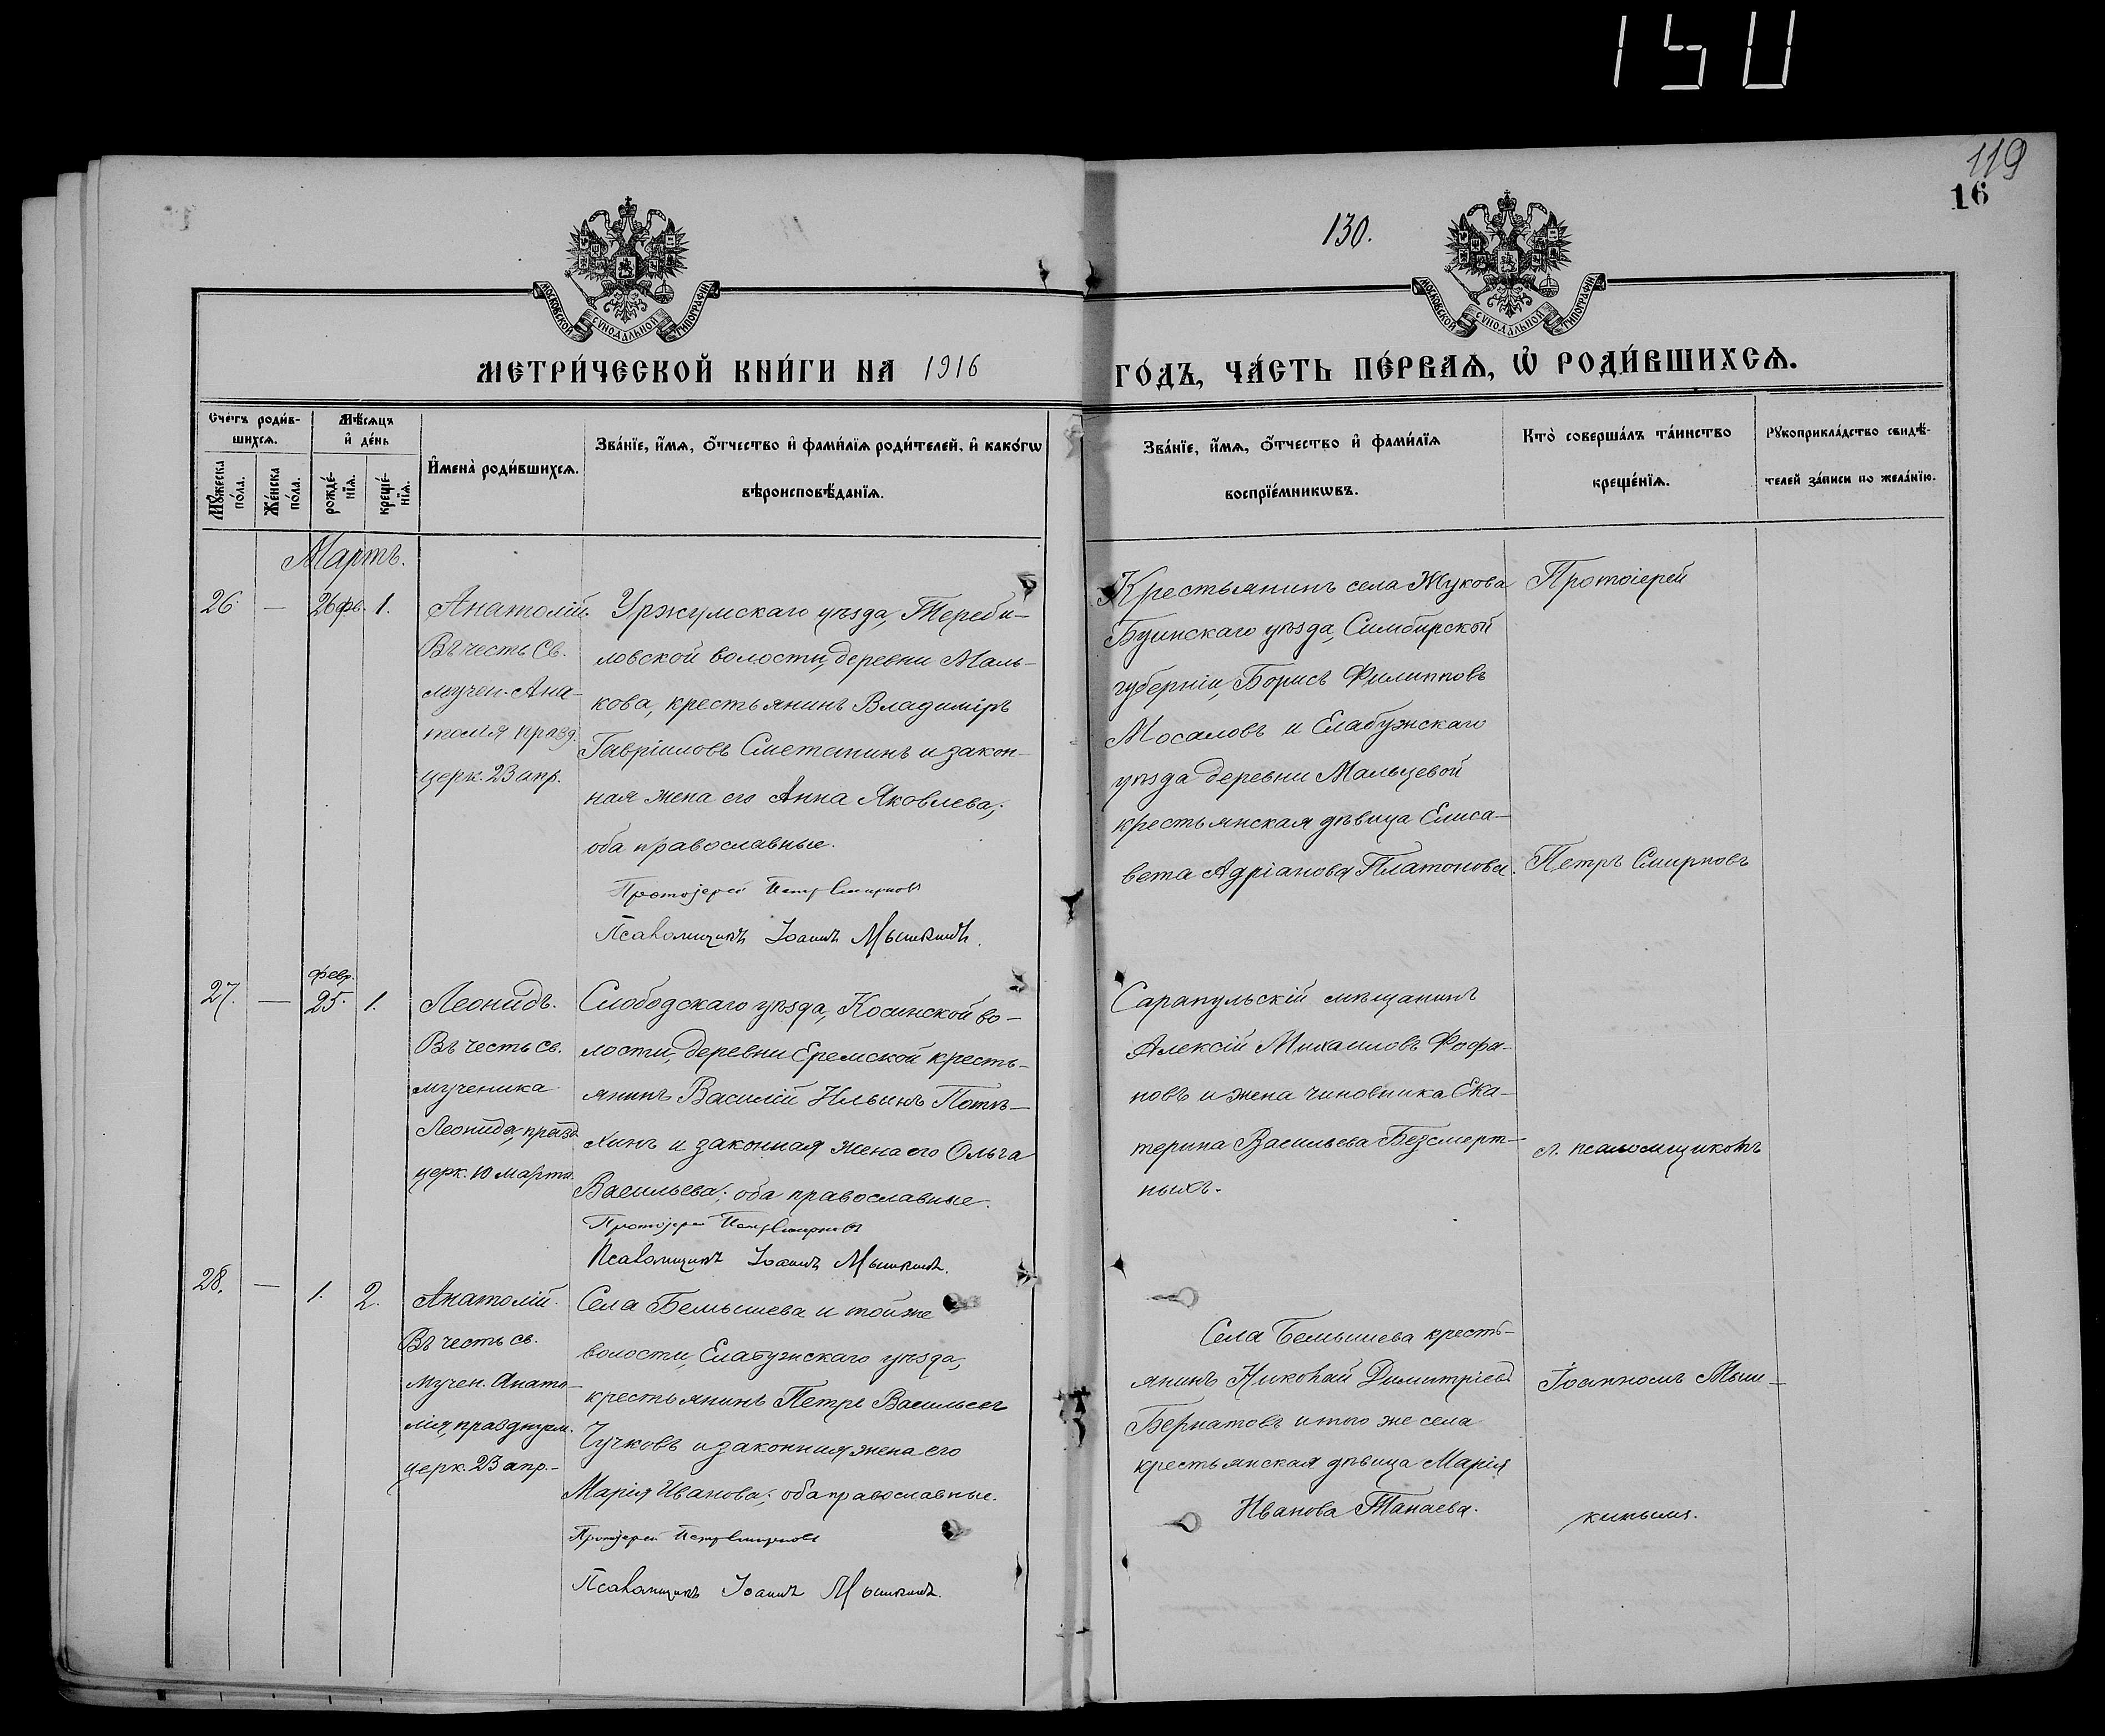 150
119
16
130.
МОСКОВСКОЙ СѴНОДАЛЬНОЙ ТИПОГРАФІИ
МОСКОВСКОЙ СѴНОДАЛЬНОЙ ТИПОГРАФІИ
МЕТРИ́ЧЕСКОЙ КНИ́ГИ НА 1916 ГО́ДЪ, ЧА́СТЬ ПЕ́РВАѦ, Ѡ҆ РОДИ́ВШИХСѦ.
Сче́тъ роди́в-
шихсѧ.
Мѣ́сѧцъ
и҆ де́нь
Мꙋ́жеска
по́ла.
Же́нска
по́ла.
рожде́-
нїѧ.
креще́-
нїѧ.
И҆мена̀ роди́вшихсѧ.
Зва́нїе, и҆́мѧ, о҆́тчество и҆ фами́лїѧ роди́телей, и҆ како́гѡ
вѣроисповѣ́данїѧ.
Зва́нїе, и҆́мѧ, о҆́тчество и҆ фами́лїѧ
воспрїе́мникѡвъ.
Кто̀ соверша́лъ та́инство
креще́нїѧ.
Рꙋкоприкла́дство свидѣ́-
телей за́писи по жела́нїю.
Мартъ.
26. — 26 фв. 1.
Анатолій.
Въ честь Св.
мучен. Ана-
толія празд.
церк. 23 апр.
Уржумскаго уѣзда, Тереби-
ловской волости, деревни Маль-
кова, крестьянинъ Владиміръ
Гавріиловъ Сметанинъ и закон-
ная жена его Анна Яковлева;
оба православные.
Протоіерей Петръ Смирновъ
Псаломщикъ Іоаннъ Мышкинъ.
Крестьянинъ села Жукова
Буинскаго уѣзда, Симбирской
губерніи, Борисъ Филипповъ
Мосаловъ и Елабужскаго
уѣзда деревни Мальцевой
крестьянская дѣвица Елиса-
вета Адріанова Платонова.
Протоіерей
Петръ Смирновъ
27. — февр.
25. 1.
Леонидъ.
Въ честь св.
мученика
Леонида, празд.
церк. 10 марта.
Слободскаго уѣзда, Косинской во-
лости, деревни Еремской кресть-
янинъ Василій Ильинъ Потѣ-
хинъ и законная жена его Ольга
Васильева; оба православные.
Протоіерей Петръ Смирновъ
Псаломщикъ Іоаннъ Мышкинъ.
Сарапульскій мѣщанинъ
Алексій Михаиловъ Фофа-
новъ и жена чиновника Ека-
терина Васильева Безсмерт-
ныхъ.
с. псаломщикомъ
28. — 1. 2.
Анатолій.
Въ честь св.
мучен. Анато-
лія, празднуем.
церк. 23 апр.-
Села Бемышева и той же
волости, Елабужскаго уѣзда,
крестьянинъ Петръ Васильевъ
Чучковъ и законная жена его
Марія Иванова; оба православные.
Протоіерей Петръ Смирновъ
Псаломщикъ Іоаннъ Мышкинъ.
Села Бемышева кресть-
янинъ Николай Димитріевъ
Бернатовъ и того же села
крестьянская дѣвица Марія
Иванова Танаева.
Іоанномъ Мыш-
кинымъ.